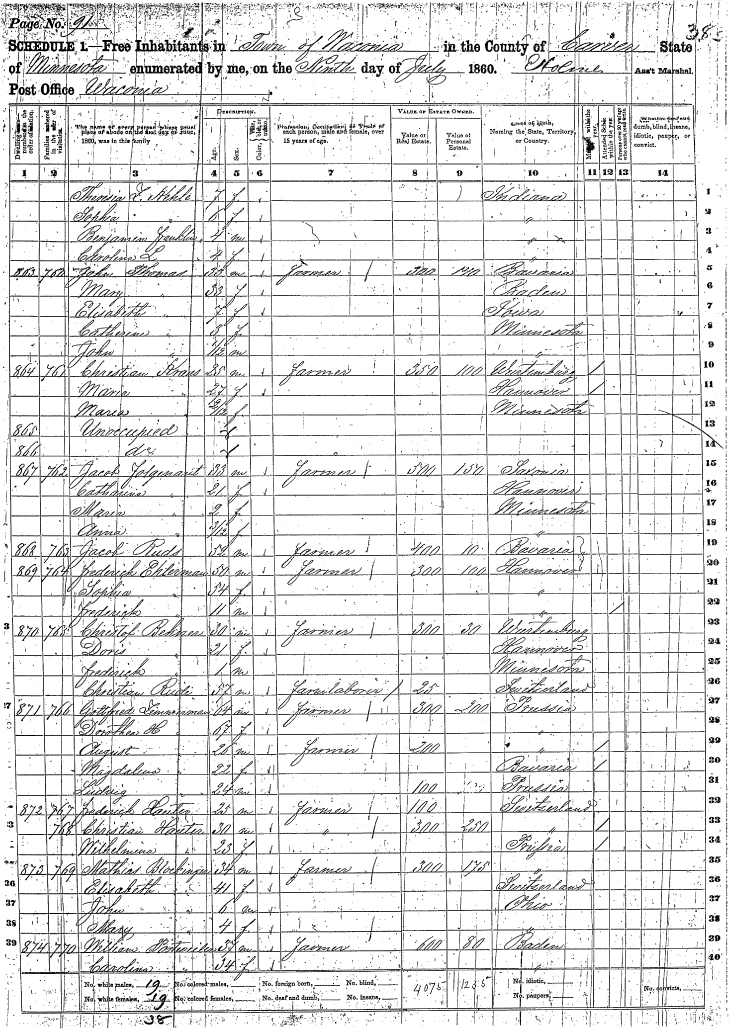 Page No. 91
38
SCHEDULE 1.—Free Inhabitants in Town of Waconia in the County of Carver State
of Minnesota enumerated by me, on the Ninth day of July 1860. Holmes Ass't Marshal.
Post Office Waconia
DESCRIPTION. VALUE OF ESTATE OWNED.
The name of every person whose usual place of abode on the first day of June, 1860, was in this family Age. Sex. Profession, Occupation, or Trade of each person, male and female, over 15 years of age. Value of Real Estate. Value of Personal Estate. Place of Birth, Naming the State, Territory, or Country. Whether deaf and dumb, blind, insane, idiotic, pauper, or convict.
1 2 3 4 5 6 7 8 9 10 11 12 13 14
Theresia L. Kohle 7 f Indiana 1
Sophia " 6 f " 2
Benjamin Franklin " 4 m " 3
Carolina L. " 4 f " 4
863 760 John Thomas 38 m Farmer 300 140 Bavaria 5
Mary " 33 f Baden 6
Elisabeth " 7 f Iowa 7
Catherine " 3 f Minnesota 8
John " 1/12 m " 9
864 761 Christian Kraus 25 m Farmer 350 100 Wurtemburg / 10
Maria " 27 f Hannover / 11
Maria " /12 f Minnesota 12
865 Unoccupied 13
866 do 14
867 762 Jacob 33 m Farmer 500 150 Saxonia 15
Catharina " 21 f Hannover 16
Maria " 2 f Minnesota 17
Anna " 3/12 f " 18
868 763 Jacob Ruds 52 m Farmer 400 10 Bavaria 19
869 764 Frederich Ehlerman 50 m Farmer 300 100 Hannover 20
Sophia " 54 f " 21
Frederich " 11 m " / 22
870 765 Christof Behner 30 m Farmer 300 30 Wurtemburg 23
Doris " 21 f Hannover 24
Frederich " 1 m Minnesota 25
Christian Rudi 57 m Farm laborer 25 Switzerland 26
871 766 Gottfried Zimmerman 64 m Farmer 300 200 Prussia 27
Dorothea H " 67 f " 28
August " 26 m Farmer 200 " / 29
Magdalena " 22 f Bavaria / 30
Ludwig " 24 m 100 Prussia 31
872 767 Frederich Hauter 25 m Farmer 100 Switzerland 32
768 Christian Hauter 30 m " 300 250 " / 33
Wilhelmina " 23 f / 34
873 769 Mathias Blockinger 34 m Farmer 300 175 " 35
Elisabeth " 41 f Switzerland 36
John " 6 m Ohio 37
Mary " 4 f " 38
874 770 William 37 m Farmer 600 80 Baden 39
Carolina " 34 f " 40
No. white males, 19 No. colored males, No. foreign born, No. blind, 4075 1255 No. idiotic, No. convicts,
No. white females, 19 No. colored females, No. deaf and dumb, No. insane, No. paupers,
38